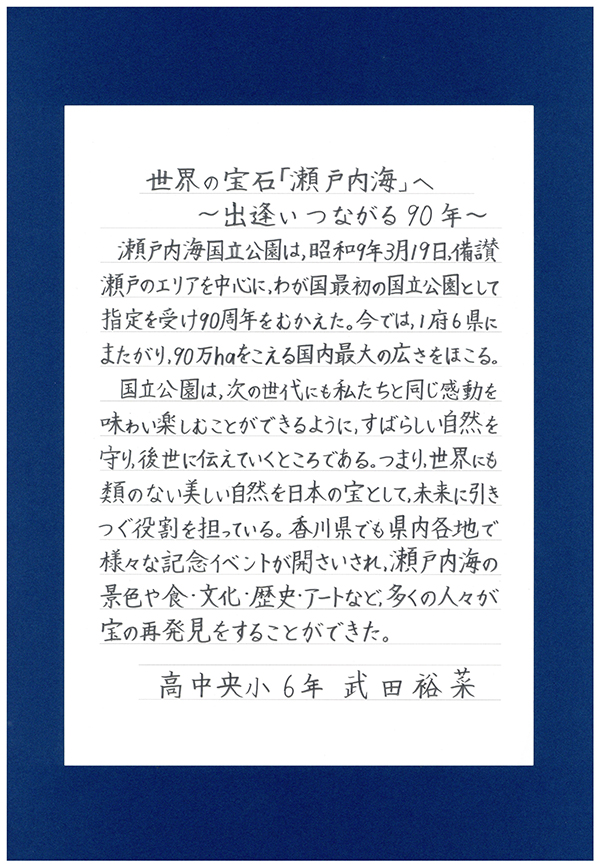 世界の宝石「瀬戸内海」へ
～出逢いつながる90年～
瀬戸内海国立公園は,昭和9年3月19日,備讃
瀬戸のエリアを中心に,わが国最初の国立公園として
指定を受け90周年をむかえた。今では,1府6県に
またがり,90万haをこえる国内最大の広さをほこる。
国立公園は,次の世代にも私たちと同じ感動を
味わい楽しむことができるように,すばらしい自然を
守り,後世に伝えていくところである。つまり,世界にも
類のない美しい自然を日本の宝として,未来に引き
つぐ役割を担っている。香川県でも県内各地で
様々な記念イベントが開さいされ,瀬戸内海の
景色や食・文化・歴史・アートなど,多くの人々が
宝の再発見をすることができた。
高中央小6年 武田裕菜